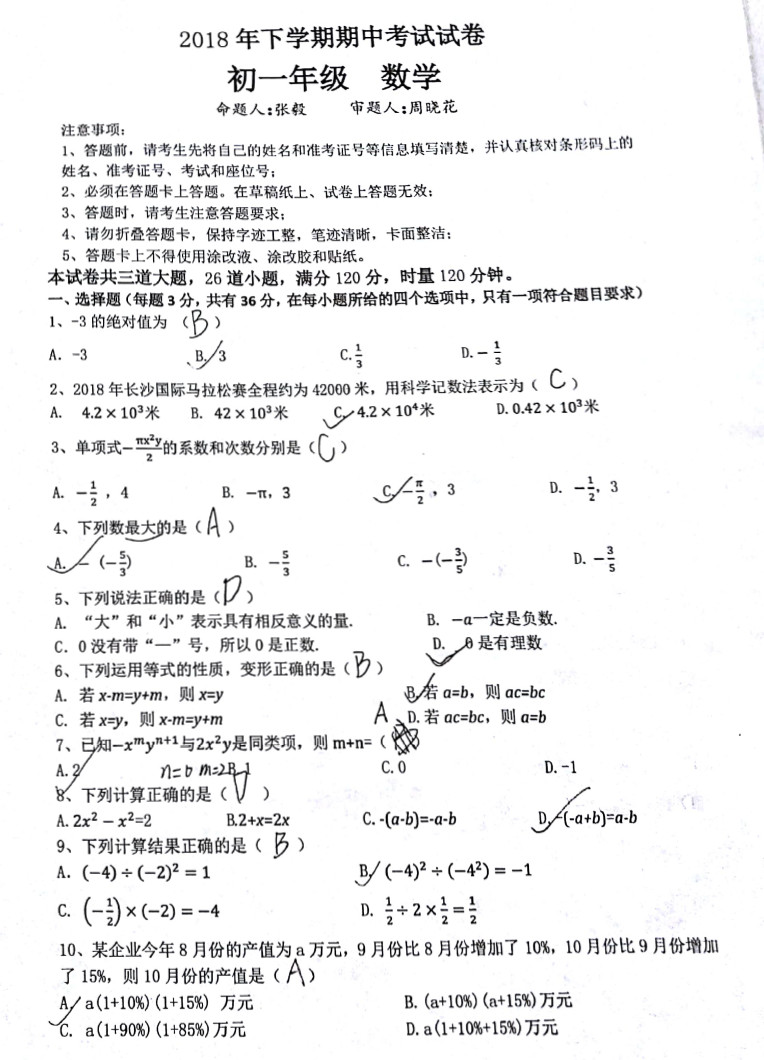 2018 年下学期期中考试试卷
初一年级 数学
命题人:张毅 审题人:周晓花
注意事项:
1、答题前,请考生先将自己的姓名和准考证号等信息填写清楚,并认真核对条形码上的
姓名、准考证号、考试和座位号;
2、必须在答题卡上答题。在草稿纸上、试卷上答题无效;
3、答题时,请考生注意答题要求;
4、请勿折叠答题卡,保持字迹工整,笔迹清晰,卡面整洁;
5、答题卡上不得使用涂改液、涂改胶和贴纸。
本试卷共三道大题,26 道小题,满分 120 分,时量 120 分钟。
一、选择题(每题 3 分,共有 36 分,在每小题所给的四个选项中,只有一项符合题目要求)
1、-3 的绝对值为 (B)
A. -3 B. 3 C. 1/3 D. −1/3
2、2018 年长沙国际马拉松赛全程约为 42000 米,用科学记数法表示为( C )
A. 4.2 × 10³米 B. 42 × 10³米 C. 4.2 × 10⁴米 D. 0.42 × 10³米
3、单项式−πx²y/2的系数和次数分别是(C)
A. −1/2,4 B. −π,3 C. −π/2,3 D. −1/2,3
4、下列数最大的是(A)
A. −(−5/3) B. −5/3 C. −(−3/5) D. −3/5
5、下列说法正确的是(D)
A. “大”和“小”表示具有相反意义的量. B. −a一定是负数.
C. 0 没有带“—”号,所以 0 是正数. D. 0 是有理数
6、下列运用等式的性质,变形正确的是(B)
A. 若 x-m=y+m,则 x=y B. 若 a=b,则 ac=bc
C. 若 x=y,则 x-m=y+m D. 若 ac=bc,则 a=b
A
7、已知−xᵐyⁿ⁺¹与2x²y是同类项,则 m+n=( )
A. 2 n=0 m=2 B. 1 C. 0 D. -1
8、下列计算正确的是( D )
A. 2x² − x²=2 B.2+x=2x C. -(a-b)=-a-b D. -(-a+b)=a-b
9、下列计算结果正确的是( B )
A. (−4) ÷ (−2)² = 1 B. (−4)² ÷ (−4²) = −1
C. (−1/2) × (−2) = −4 D. 1/2 ÷ 2 × 1/2 = 1/2
10、某企业今年 8 月份的产值为 a 万元,9 月份比 8 月份增加了 10%,10 月份比 9 月份增加
了 15%,则 10 月份的产值是(A)
A. a(1+10%)(1+15%) 万元 B. (a+10%)(a+15%)万元
C. a(1+90%)(1+85%)万元 D. a(1+10%+15%)万元